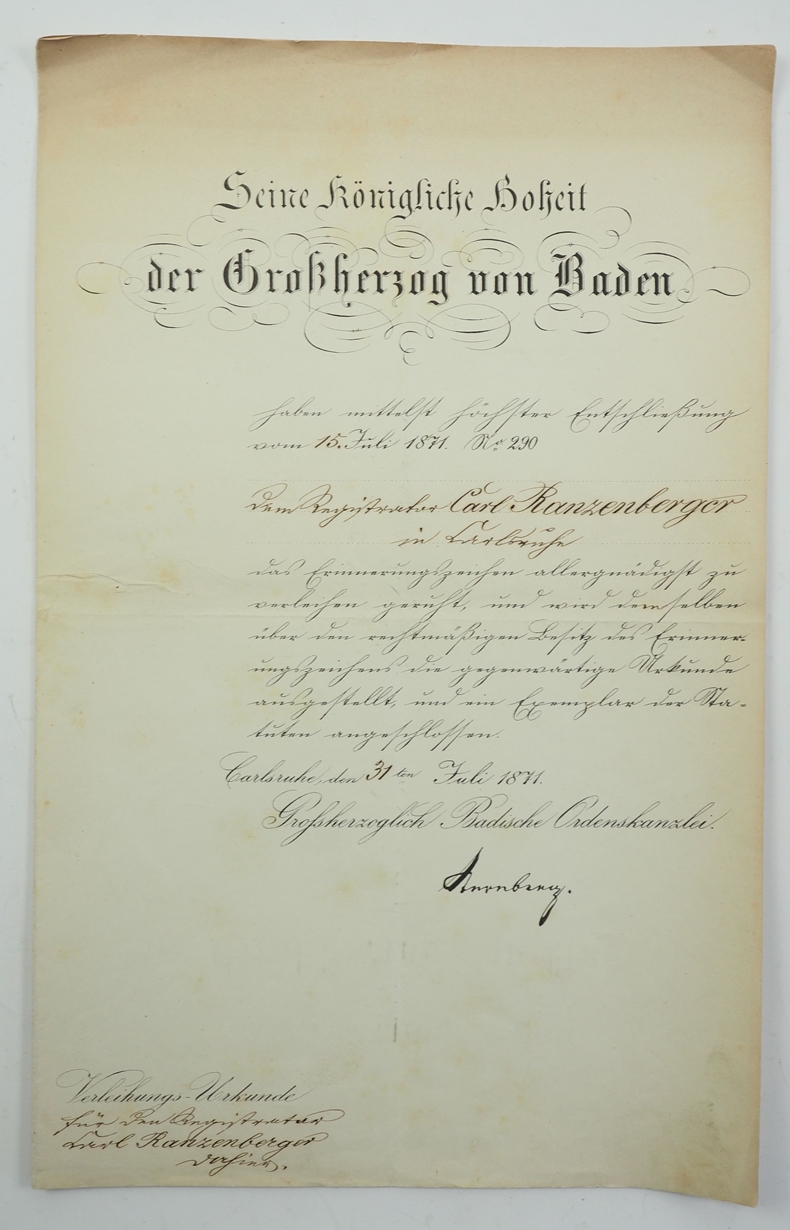 Seine Königliche Hoheit
der Großherzog von Baden
haben mittelst höchster Entschließung
vom 15. Juli 1871. No. 290
dem Registrator Carl Ranzenberger
in Carlsruhe
das Erinnerungszeichen allergnädigst zu
verleihen geruht, und wird demselben
über den rechtmäßigen Besitz des Erinner-
ungszeichens die gegenwärtige Urkunde
ausgestellt, und ein Exemplar der Sta-
tuten angeschlossen.
Carlsruhe, den 31ten Juli 1871.
Großherzoglich Badische Ordenskanzlei.
Sternberg.
Verleihungs-Urkunde
für den Registrator
Carl Ranzenberger
dahier.